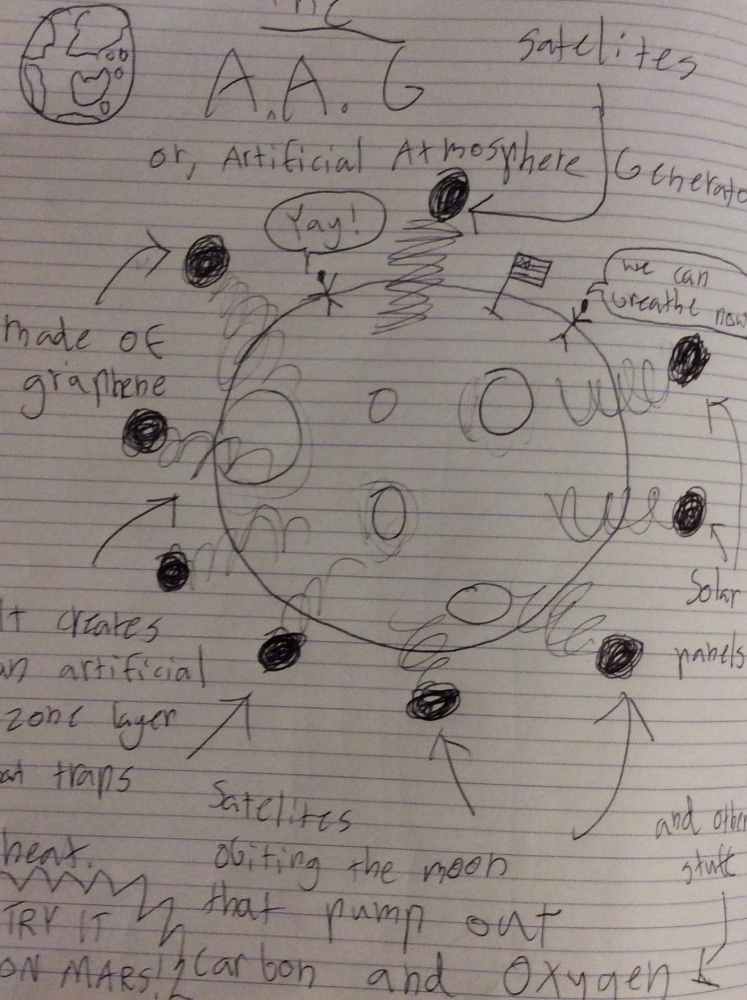 The
A.A.G
Satelites
or, Artificial Atmosphere Generato
Yay!
we can
breathe now
made of
graphene
Solar
panels
It creates
an artificial
zone layer
at traps
heat.
Satelites
obiting the moon
that pump out
carbon and Oxygen
and other
stuff
TRY IT
ON MARS!